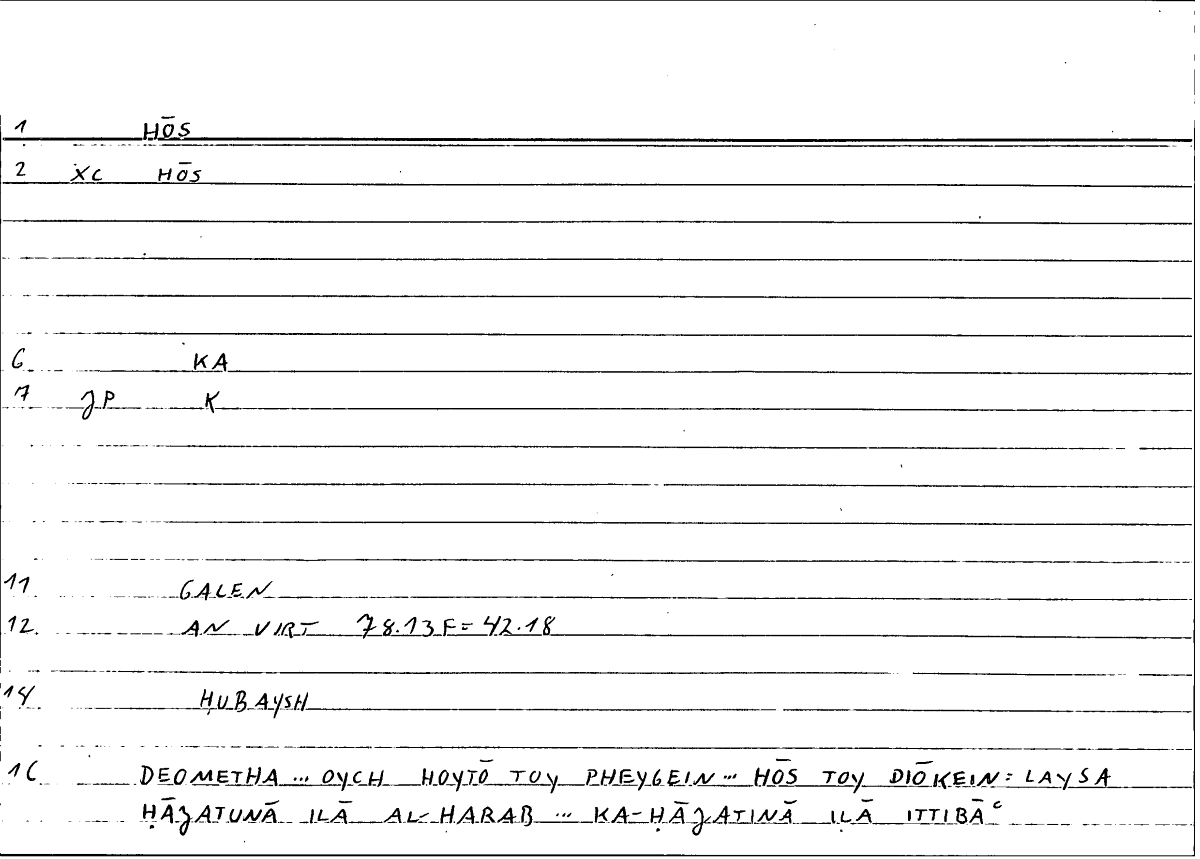 1 HŌS
2 XC HŌS
6 KA
7 JP K
11 GALEN
12 AN VIRT 78.13F=42.18
14 ḤUBAYSH
16 DEOMETHA … OYCH HOYTŌ TOY PHEYGEIN … HŌS TOY DIŌKEIN: LAYSA
ḤĀJATUNĀ ILĀ AL-HARAB … KA-ḤĀJATINĀ ILĀ ITTIBĀᶜ